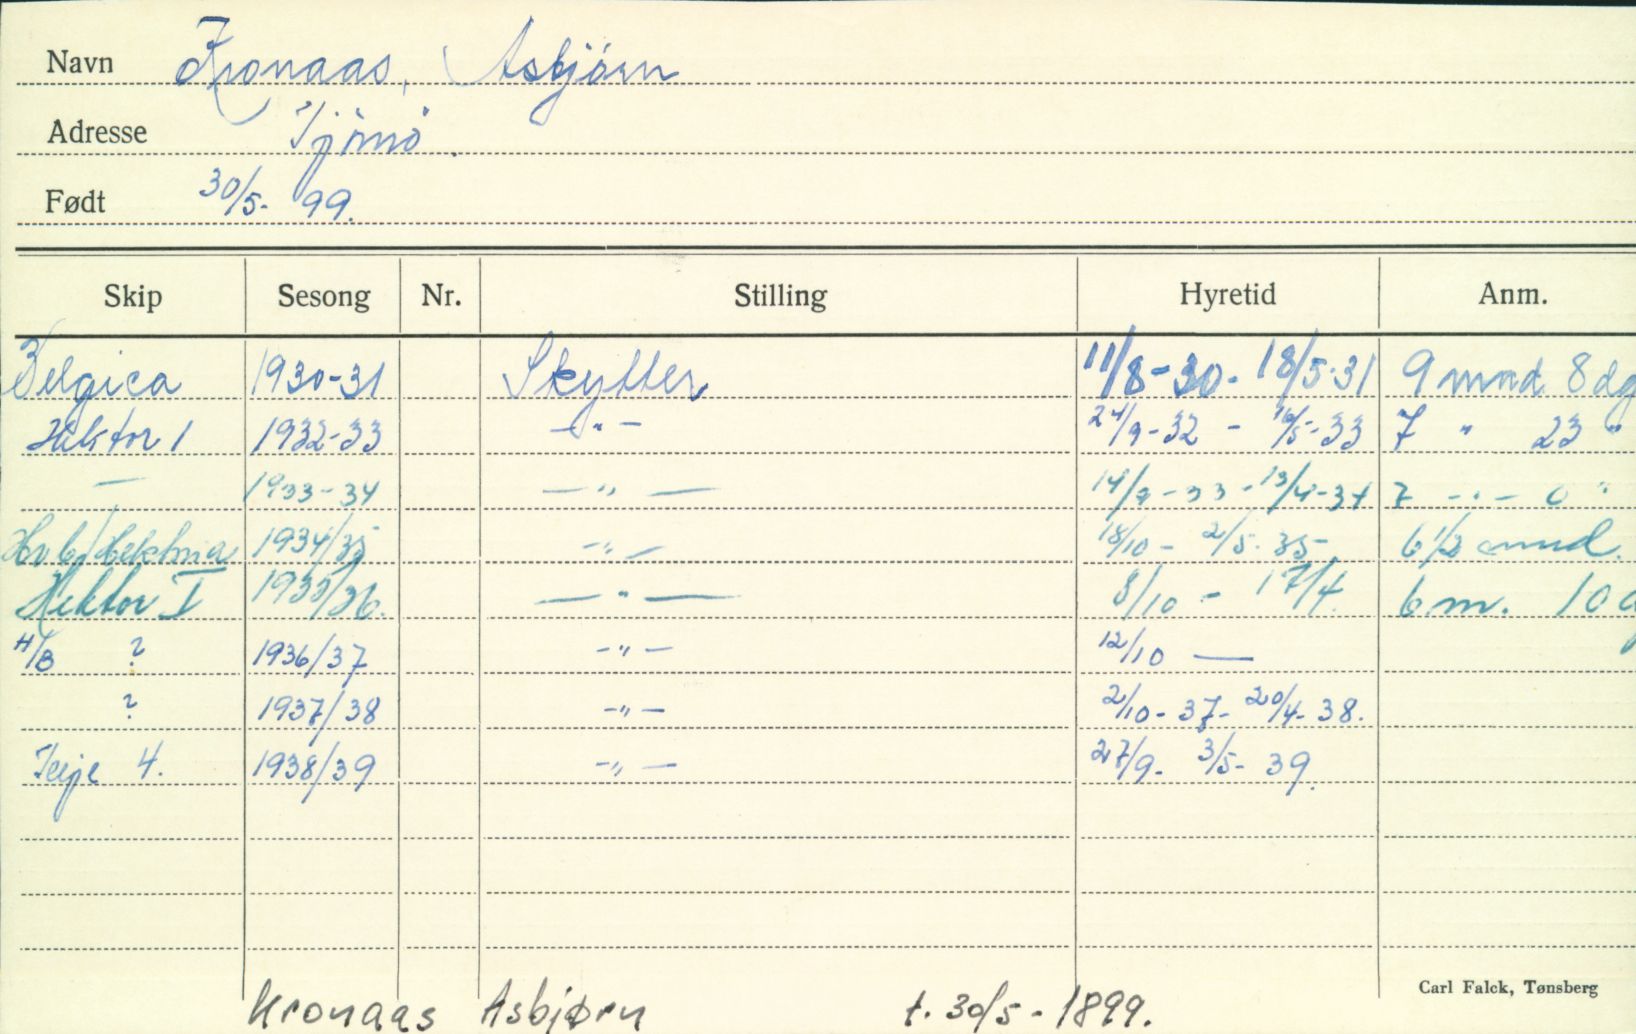 Navn Kronaas, Asbjørn
Adresse Tjömö.
Født 30/5- 99.
Skip Sesong Nr. Stilling Hyretid Anm.
Belgica 1930-31 Skytter 11/8-30- 18/5-31 9 mnd 8 dg
Hektor 1 1932-33 -"- 24/9-32 - 16/5-33 7 " 23 "
— 1933-34 —"— 14/9-33-13/4-34 7 -"- 0 "
Hvb/Hektoria 1934/35 -"- 18/10- 2/5-35- 6 1/2 mnd.
Hektor I 1935/36. —"— 8/10 - 17/4. 6 m. 10
H/B ? 1936/37 -"- 12/10 —
? 1937/38 -"- 2/10-37- 20/4-38.
Terje 4. 1938/39 -"- 27/9- 3/5- 39.
Carl Falck, Tønsberg
Kronaas Asbjørn f. 30/5-1899.